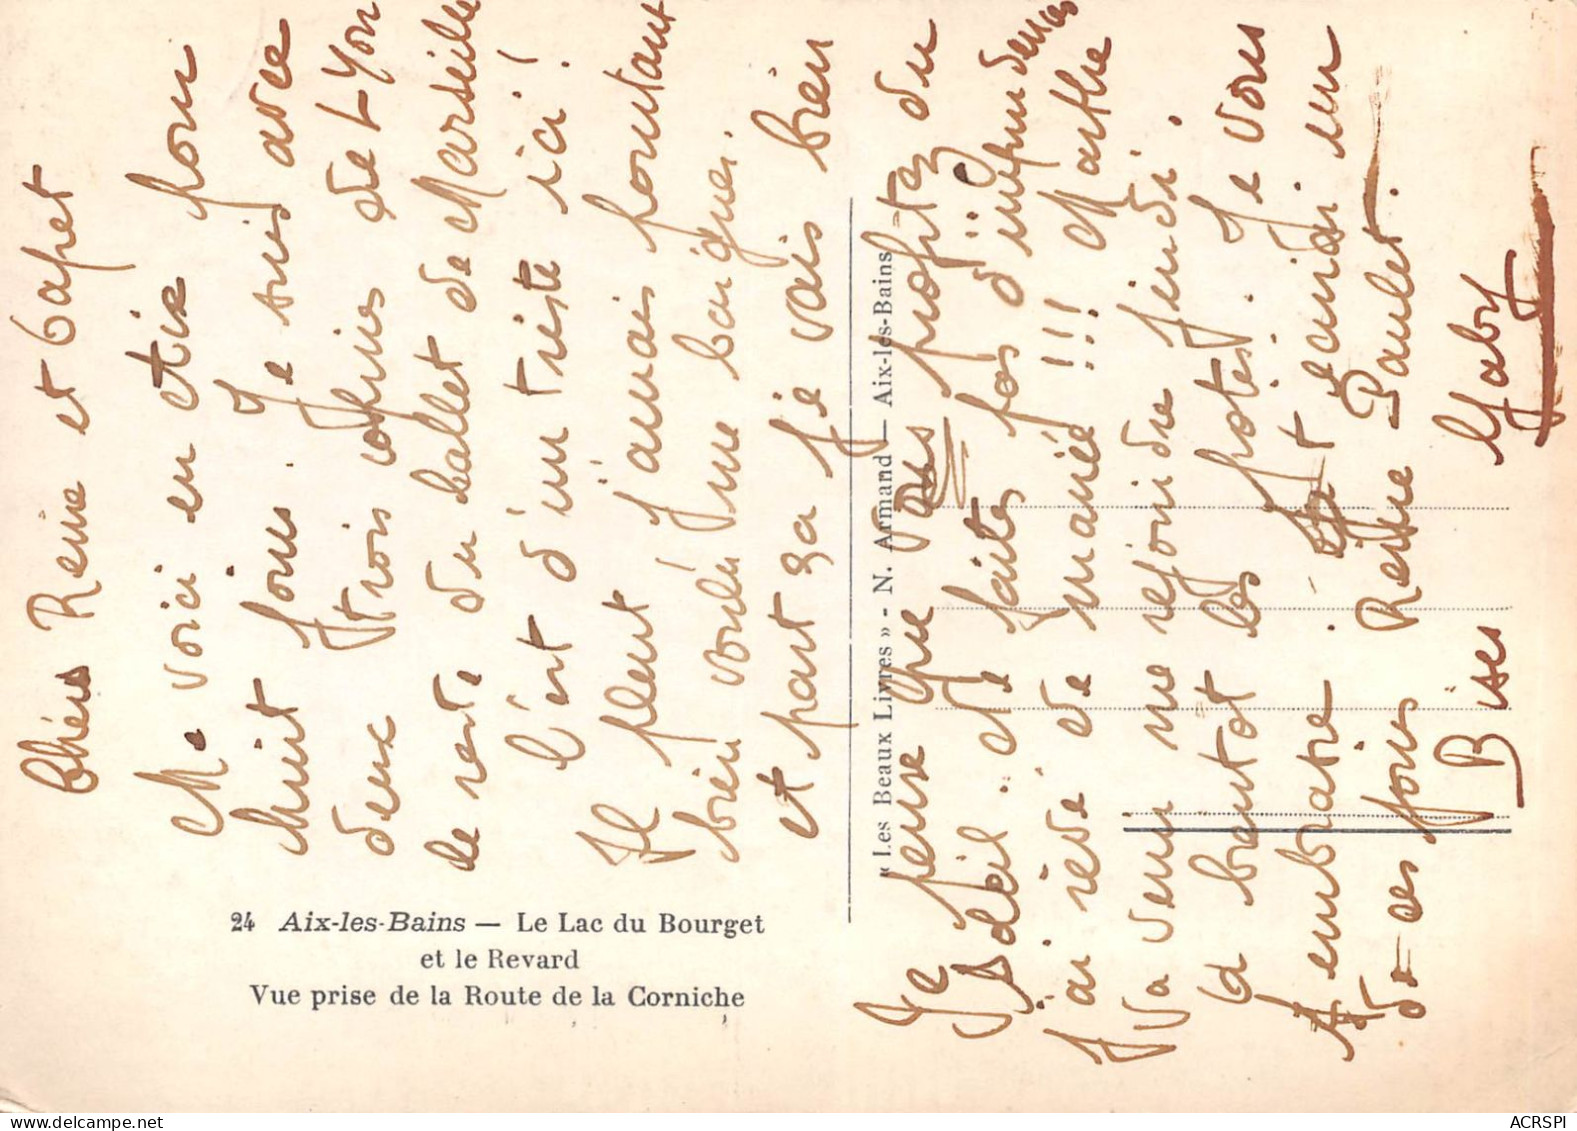 Chers Reine et bapet
Me voici en Aix pour
huit jours. Je suis avec
deux trois copines de Lyon
le reste du ballet de Marseille
C'est d'un triste ici!
Il pleut j'aurais pourtant
bien voulu me baigner.
et part ça je vais bien
Je pense que vous profitez du
soleil. et ne faites pas d'imprudences
j'ai rêvé de mariée !!! Marthe
va venu me rejoindre jeudi.
à bientôt les potes. Je vous
embrasse. et écrivai un
de ces jours Reine Paulet.
Bises Gaby
24 Aix-les-Bains — Le Lac du Bourget
et le Revard
Vue prise de la Route de la Corniche
« Les Beaux Livres » - N. Armand — Aix-les-Bains
ACRSPI